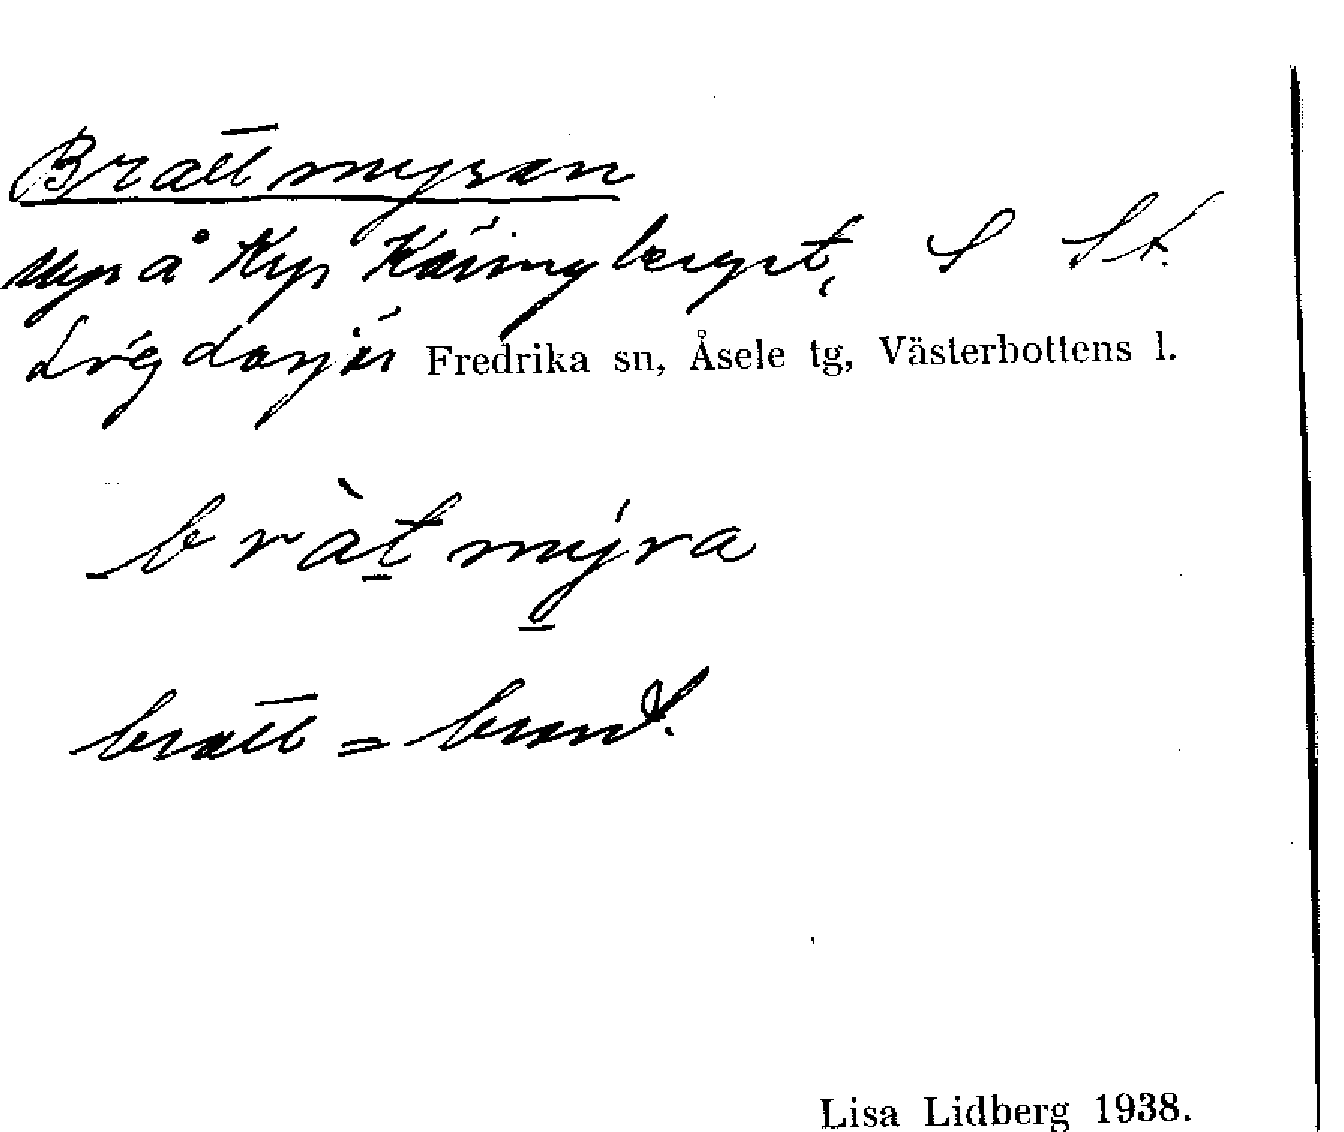 Brattmyran
myr å Krp Käringberget, S St.
Lögdasjö Fredrika sn, Åsele tg, Västerbottens l.
bràt mýra
bratt = brant.
Lisa Lidberg 1938.